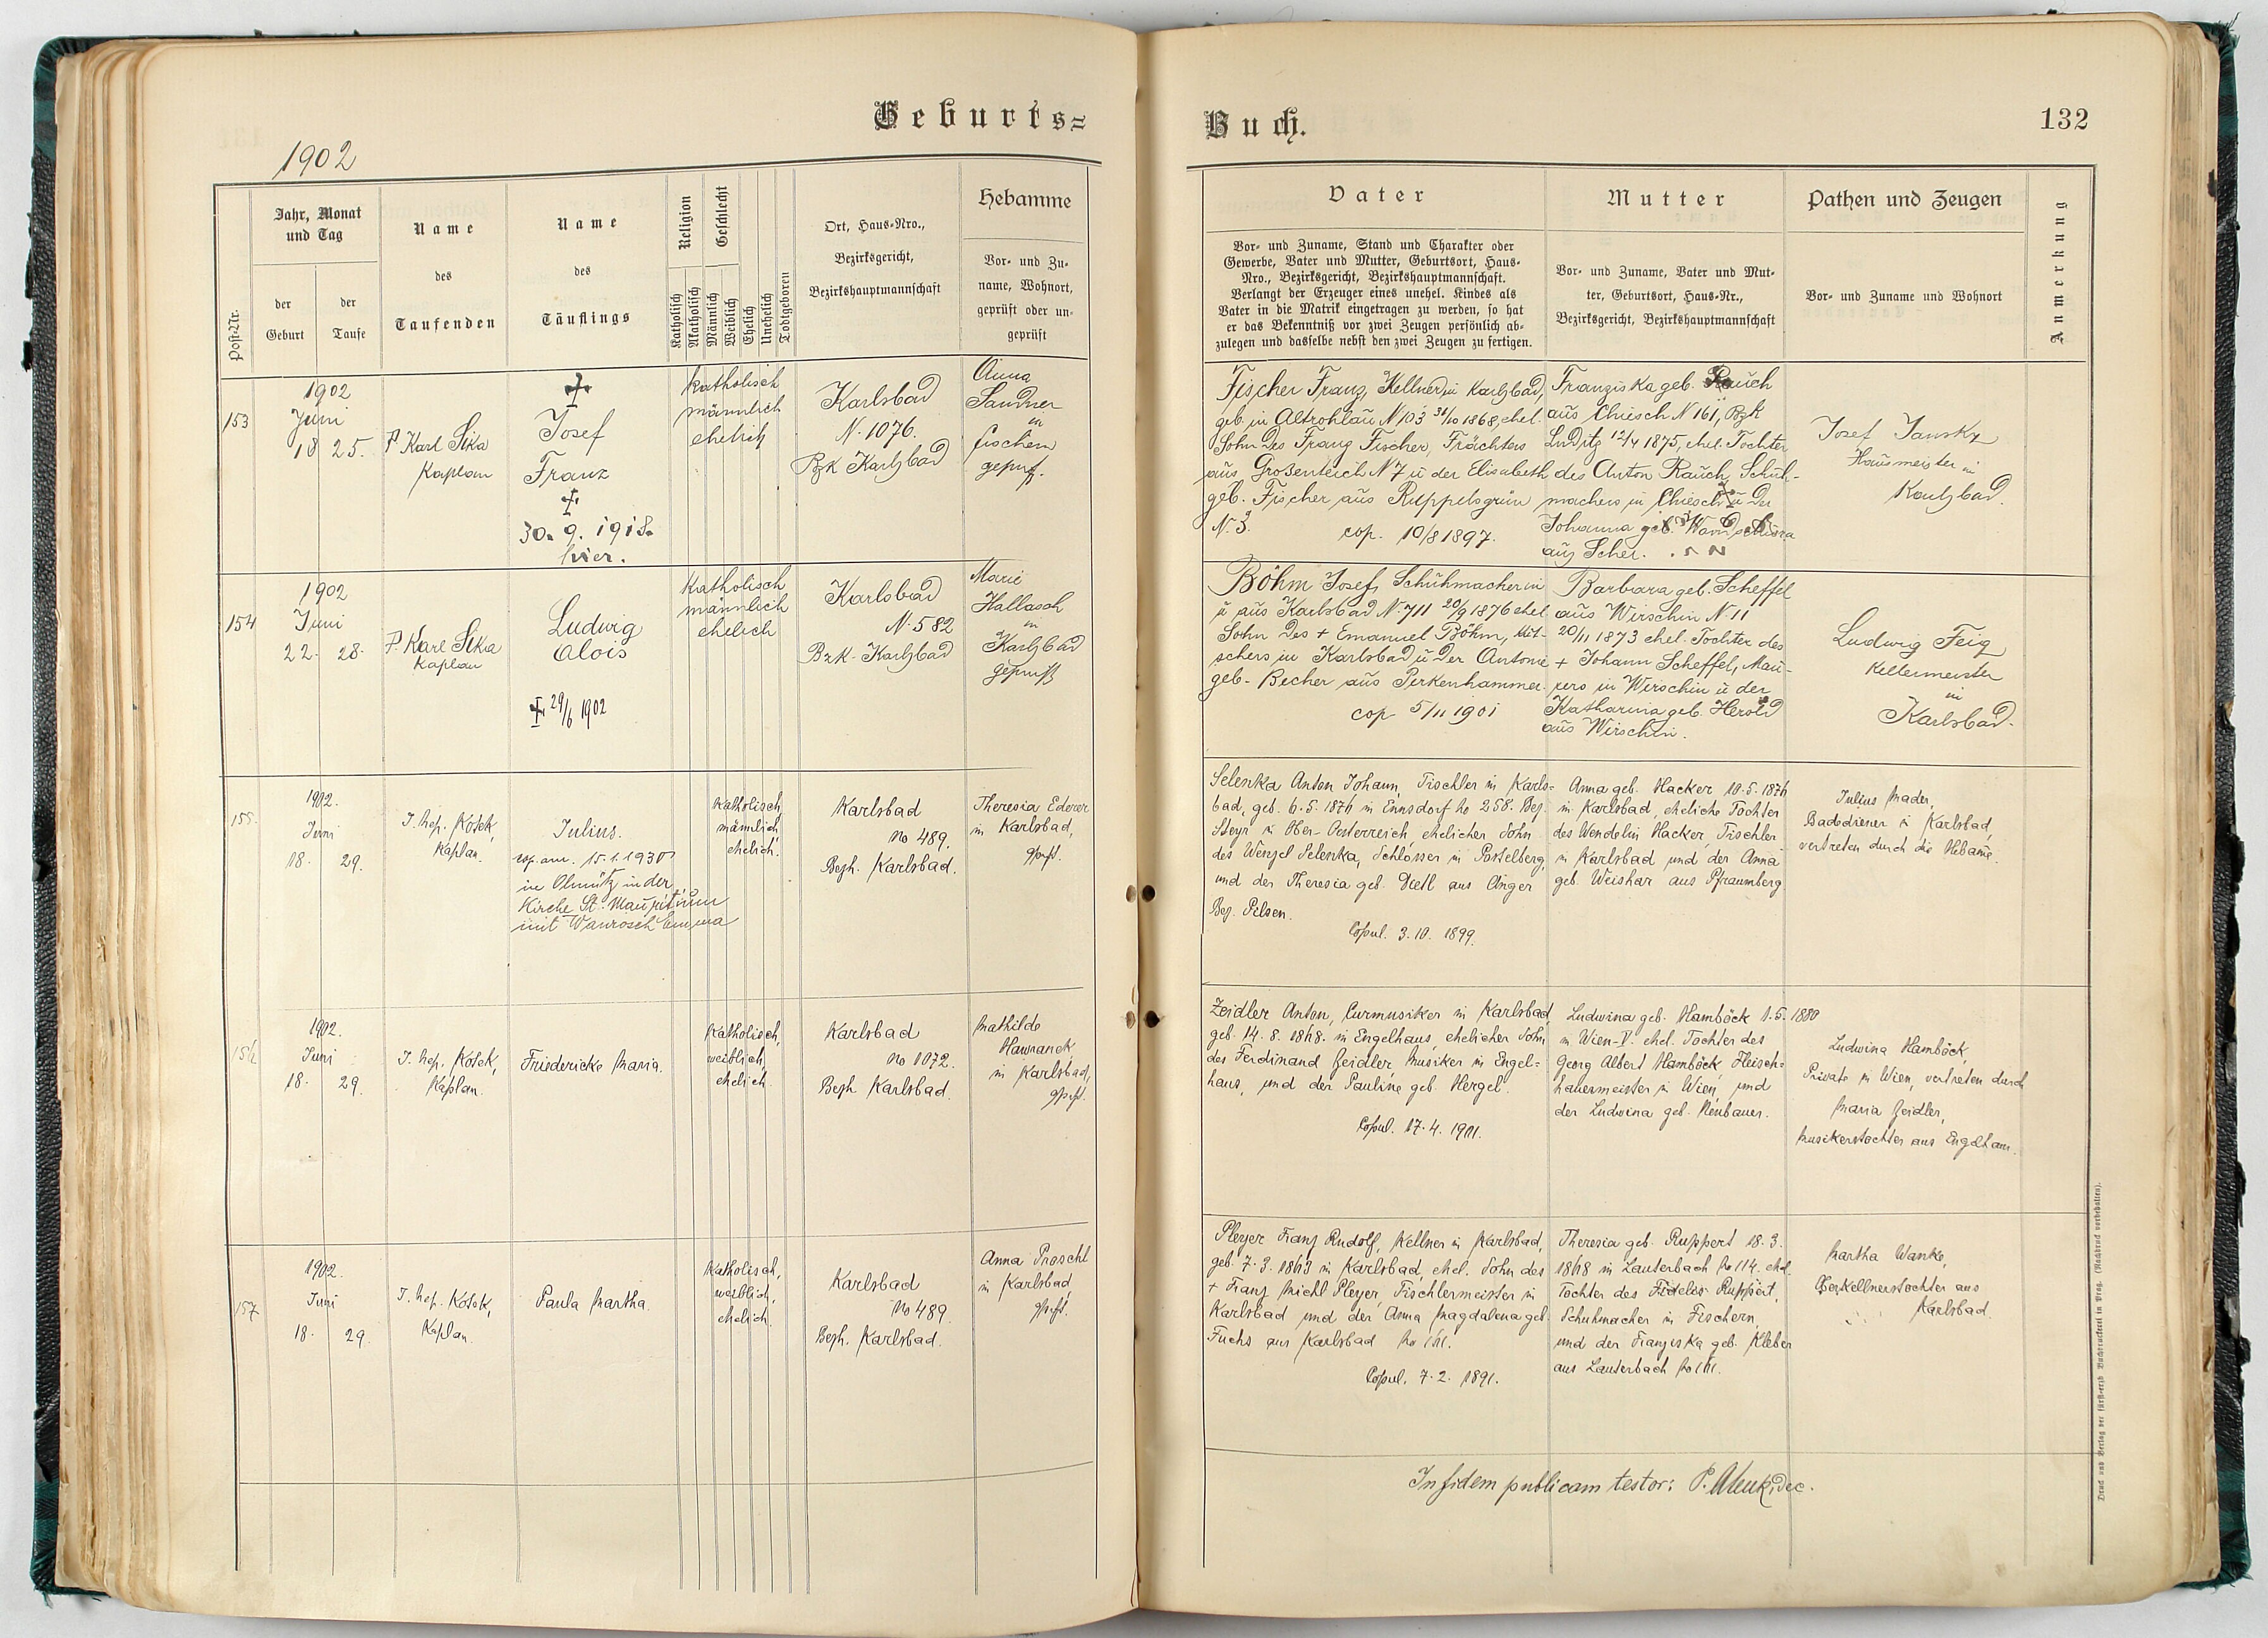 Geburts=
1902
Post-Nr.
Jahr, Monat
und Tag
der
Geburt
der
Taufe
Name
des
Taufenden
Name
des
Täuflings
Religion
Geschlecht
Katholisch
Akatholisch
Männlich
Weiblich
Ehelich
Unehelich
Todtgeboren
Ort, Haus-Nro.,
Bezirksgericht,
Bezirkshauptmannschaft
Hebamme
Vor- und Zu-
name, Wohnort,
geprüft oder un-
geprüft
153
1902
Juni
18 25.
P. Karl Sika
Kaplan
Josef
Franz
30. 9. 1918.
hier.
katholisch
männlich
ehelich
Karlsbad
N. 1076.
Bzk Karlsbad
Anna
Sandner
in
Fischern
geprüf.
154
1902
Juni
22. 28.
P. Karl Sika
Kaplan
Ludwig
Alois
29/6 1902
katholisch
männlich
ehelich
Karlsbad
N. 582
Bzk. Karlsbad
Marie
Hallasch
in
Karlsbad
geprüft
155.
1902.
Juni
18. 29.
J. Nep. Kosek,
Kaplan.
Julius.
cop. am. 15.1.1930
in Olmütz in der
Kirche St. Mauritium
mit Wawrosch Emma
katholisch,
männlich,
ehelich.
Karlsbad
No 489.
Bezh. Karlsbad.
Theresia Ederer
in Karlsbad,
gprft.
156
1902.
Juni
18. 29.
J. Nep. Kosek,
Kaplan.
Friedericke Maria.
katholisch,
weiblich,
ehelich.
Karlsbad
No 1072.
Bezh Karlsbad.
Mathilde
Hawranek
in Karlsbad,
gprft.
157
1902.
Juni
18. 29.
J. Nep. Kosek,
Kaplan.
Paula Martha.
katholisch,
weiblich,
ehelich.
Karlsbad
No 489.
Bezh. Karlsbad.
Anna Proschl
in Karlsbad,
gprft.
Buch.
132
Vater
Vor- und Zuname, Stand und Charakter oder
Gewerbe, Vater und Mutter, Geburtsort, Haus-
Nro., Bezirksgericht, Bezirkshauptmannschaft.
Verlangt der Erzeuger eines unehel. Kindes als
Vater in die Matrik eingetragen zu werden, so hat
er das Bekenntniß vor zwei Zeugen persönlich ab-
zulegen und dasselbe nebst den zwei Zeugen zu fertigen.
Mutter
Vor- und Zuname, Vater und Mut-
ter, Geburtsort, Haus-Nr.,
Bezirksgericht, Bezirkshauptmannschaft
Pathen und Zeugen
Vor- und Zuname und Wohnort
Anmerkung
Fischer Franz, Kellner in Karlsbad,
geb. in Altrohlau N 103 31/10 1868, ehel.
Sohn des Franz Fischer, Frächters
aus Grosenteich N 7 u der Elisabeth
geb. Fischer aus Ruppelsgrün
N. 3.
cop. 10/8 1897.
Franziska geb. Rauch
aus Chiesch N 161, Bzk
Luditz 12/4 1875, ehel. Tochter
des Anton Rauch, Schuh-
machers in Chiesch u der
Johanna geb.
aus Scheł.
Josef Jansky
Hausmeister in
Karlsbad.
Böhm Josef, Schuhmacher in
u aus Karlsbad N. 711 20/9 1876 ehel.
Sohn des + Emanuel Böhm, Kut-
schers in Karlsbad u der Antonie
geb. Becher aus Pirkenhammer.
cop 5/11 1901
Barbara geb. Scheffel
aus Wirschin N 11
20/11 1873 ehel. Tochter des
+ Johann Scheffel, Mau-
rers in Wirschin u der
Katharina geb. Herold
aus Wirschin.
Ludwig Feig
Kellermeister
in
Karlsbad.
Selenka Anton Johann, Tischler in Karls-
bad, geb. 6. 5. 1876 in Ennsdorf No 258. Bez.
Steyr in Ober-Oesterreich, ehelicher Sohn
des Wenzel Selenka, Schlosser in Postelberg,
und der Theresia geb. Dietl aus Anger
Bez. Pilsen.
Copul. 3. 10. 1899.
Anna geb. Hacker 10. 5. 1876
in Karlsbad, eheliche Tochter
des Wendelin Hacker, Tischler
in Karlsbad und der Anna
geb. Weishar aus Pfraumberg.
Julius Mader,
Badediener in Karlsbad,
vertreten durch die Hebame.
Zeidler Anton, Curmusiker in Karlsbad,
geb. 14. 8. 1868. in Engelhaus, ehelicher Sohn
des Ferdinand Zeidler, Musiker in Engel-
haus, und der Pauline geb. Hergel.
Copul. 17. 4. 1901.
Ludwina geb. Hamböck 1. 5. 1880
in Wien-V. ehel. Tochter des
Georg Albert Hamböck, Fleisch-
hauermeister in Wien, und
der Ludwina geb. Neubauer.
Ludwina Hamböck,
Private in Wien, vertreten durch
Maria Zeidler,
Musikerstochter aus Engelhaus.
Pleyer Franz Rudolf, Kellner in Karlsbad,
geb. 7. 3. 1863 in Karlsbad, ehel. Sohn des
+ Franz Michl Pleyer, Tischlermeister in
Karlsbad und der Anna Magdalena geb.
Fuchs aus Karlsbad No 161.
Copul. 7. 2. 1891.
Theresia geb. Ruppert 18. 3.
1868 in Lauterbach No 114. ehel.
Tochter des Fidelis Ruppert,
Schuhmacher in Fischern,
und der Franziska geb. Kleber
aus Lauterbach No 161.
Martha Wanke,
Oberkellnerstochter aus
Karlsbad.
In fidem publicam testor: P. dec.
Druck und Verlag der fürst-erzb. Buchdruckerei in Prag. (Nachdruck vorbehalten).